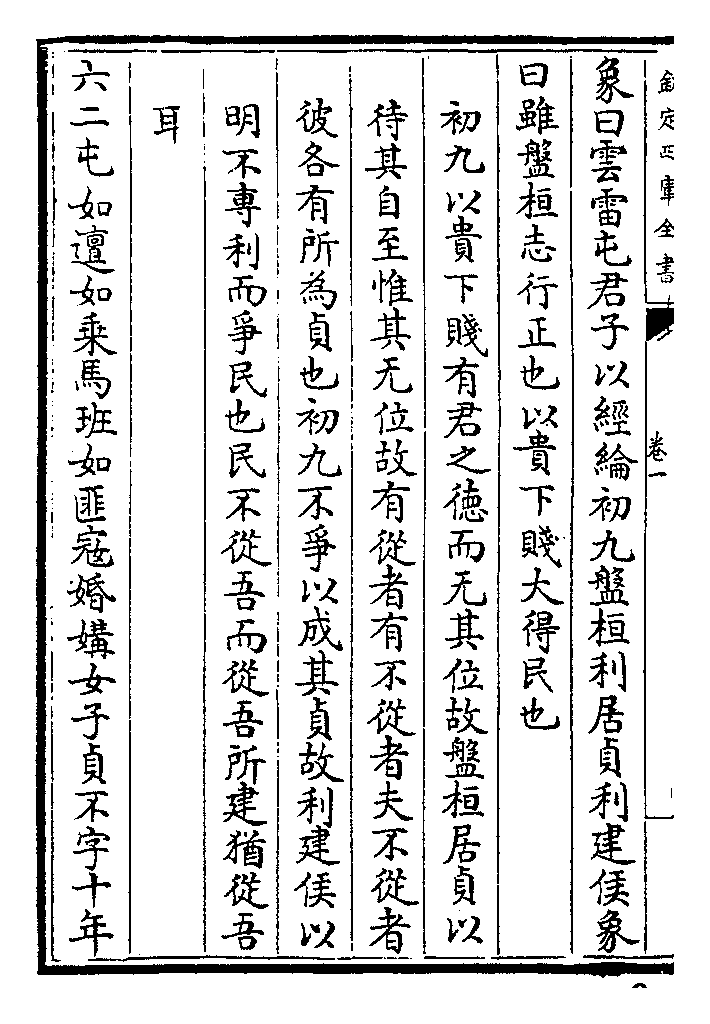 欽定四庫全書
卷一
象曰雲雷屯君子以經綸初九盤桓利居貞利建侯象
曰雖盤桓志行正也以貴下賤大得民也
初九以貴下賤有君之德而无其位故盤桓居貞以
待其自至惟其无位故有從者有不從者夫不從者
彼各有所為貞也初九不爭以成其貞故利建侯以
明不專利而爭民也民不從吾而從吾所建猶從吾
耳
六二屯如邅如乘馬班如匪寇婚媾女子貞不字十年